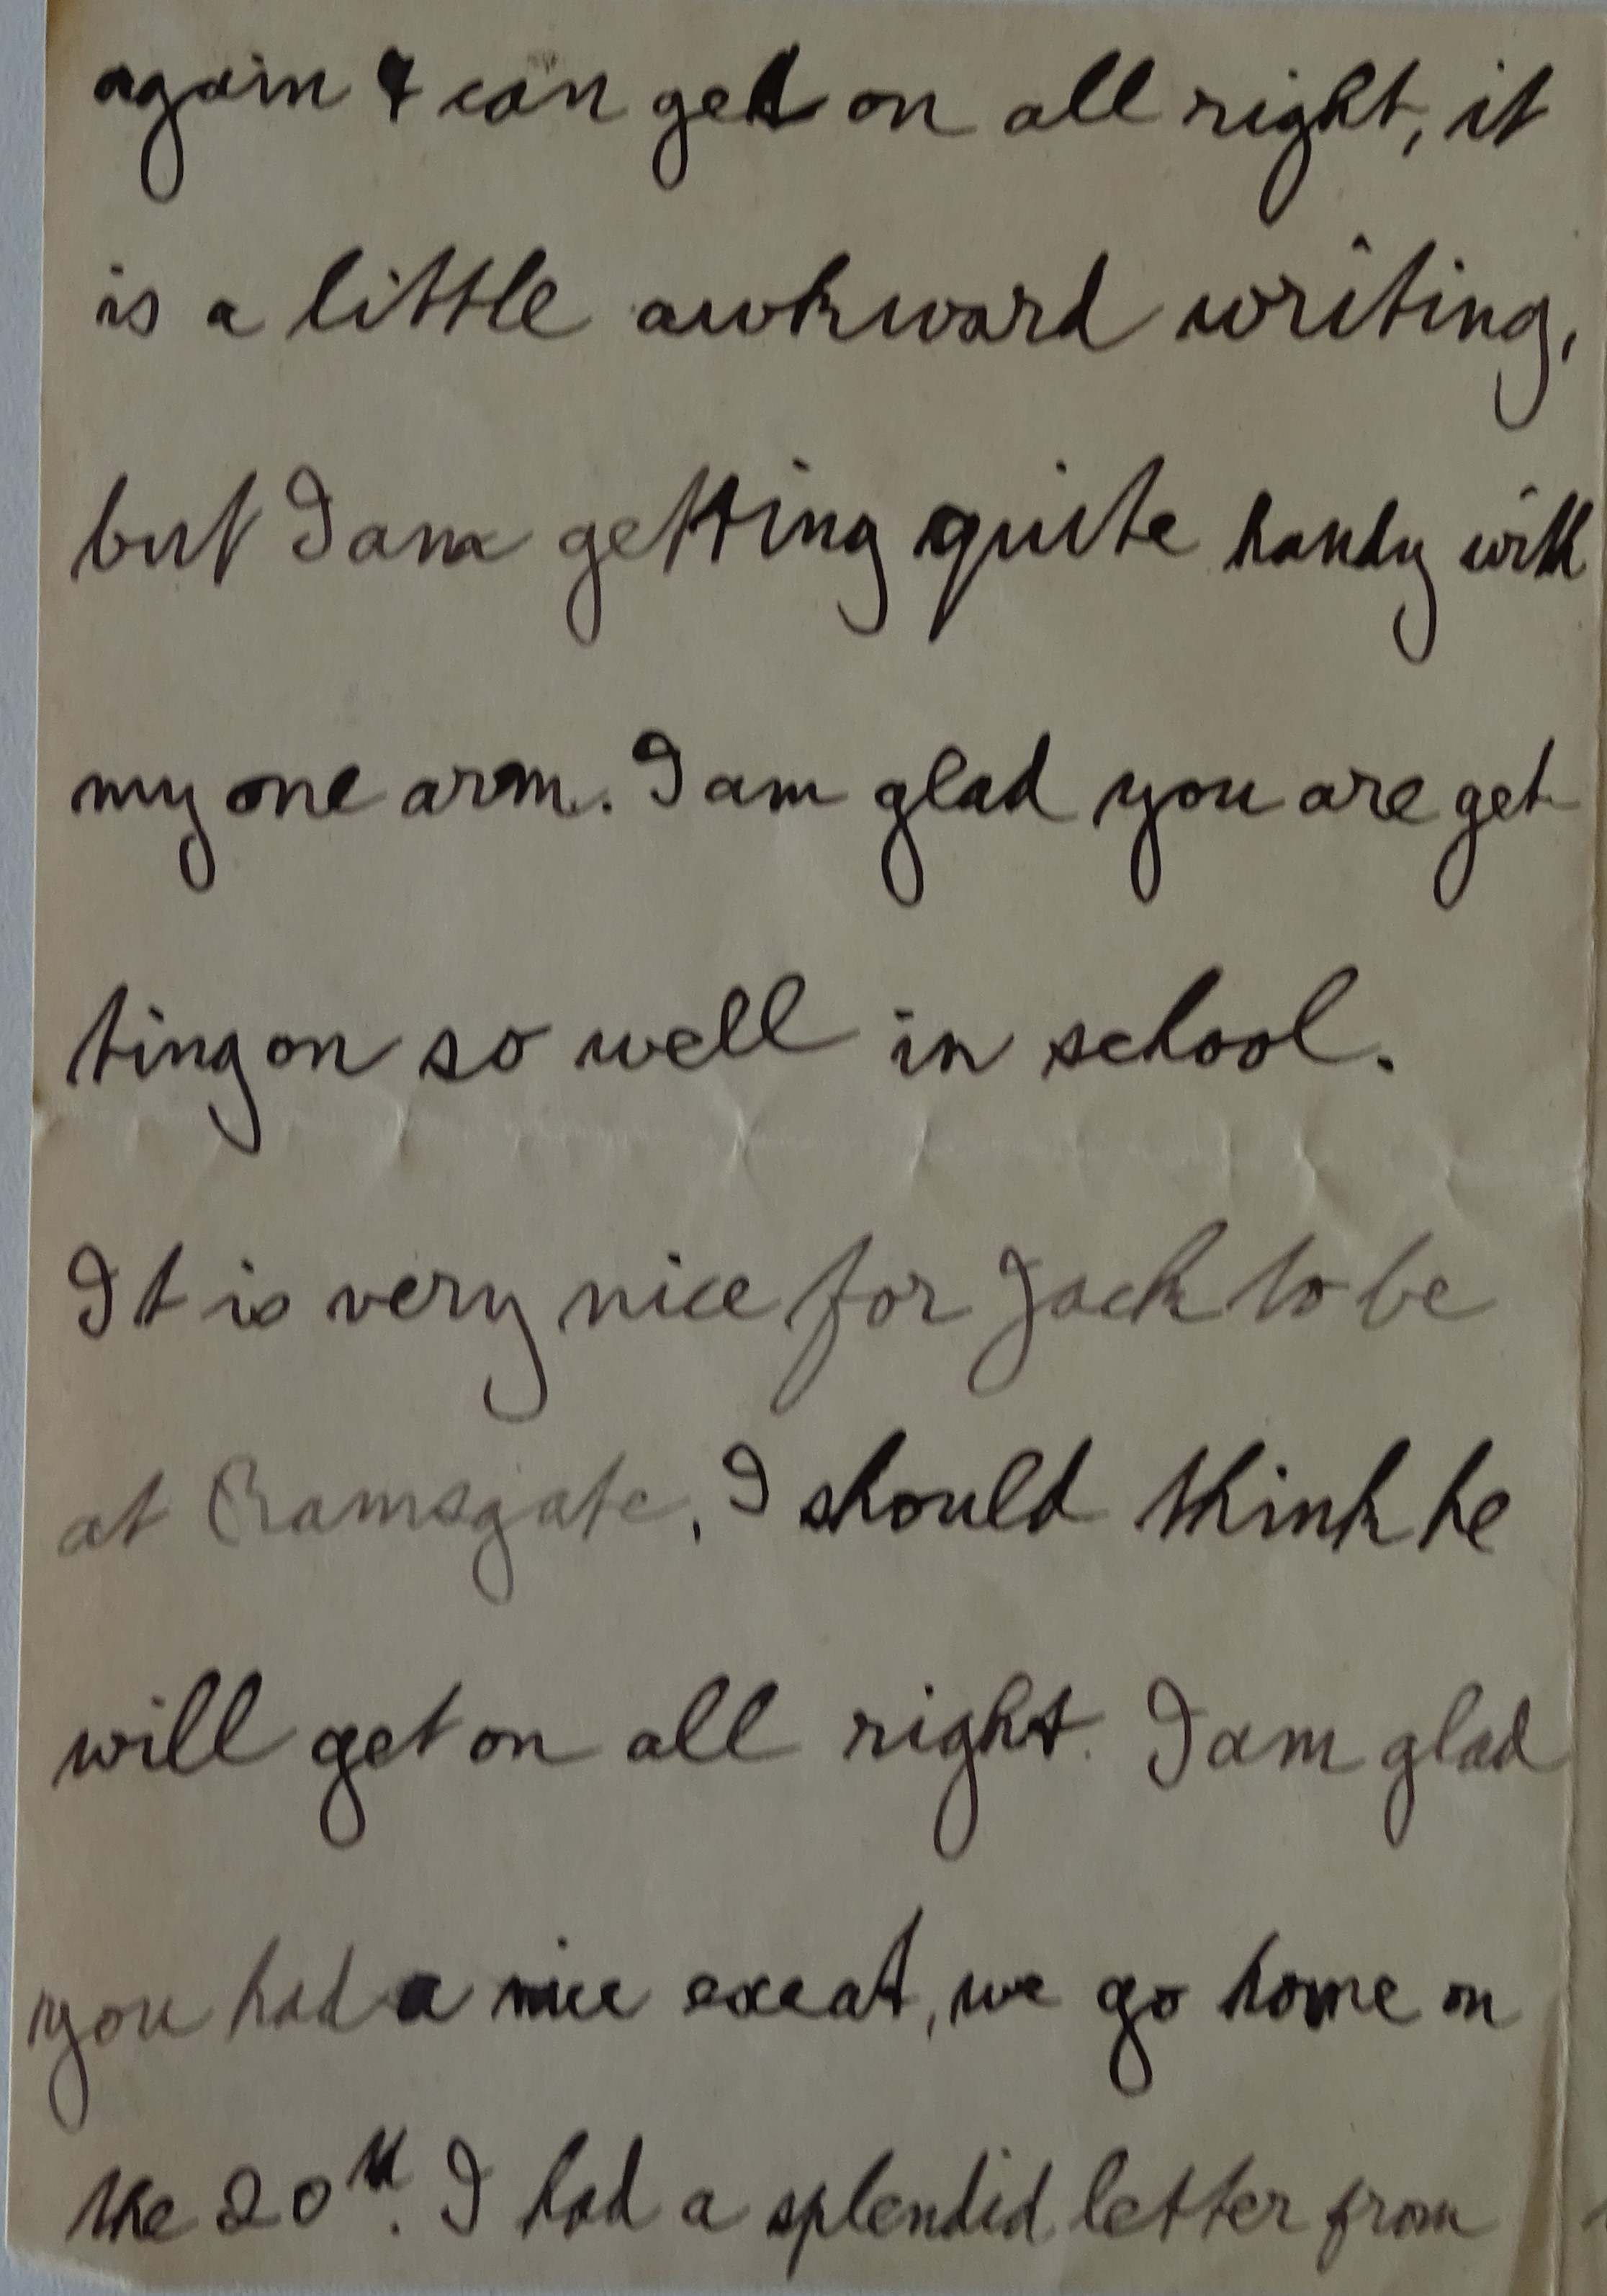 again & can get on all right, it
is a little awkward writing,
but I am getting quite handy with
my one arm. I am glad you are get
ting on so well in school.
It is very nice for Jack to be
at Ramsgate, I should think he
will get on all right. I am glad
you had a nice exeat, we go home on
the 20th. I had a splendid letter from